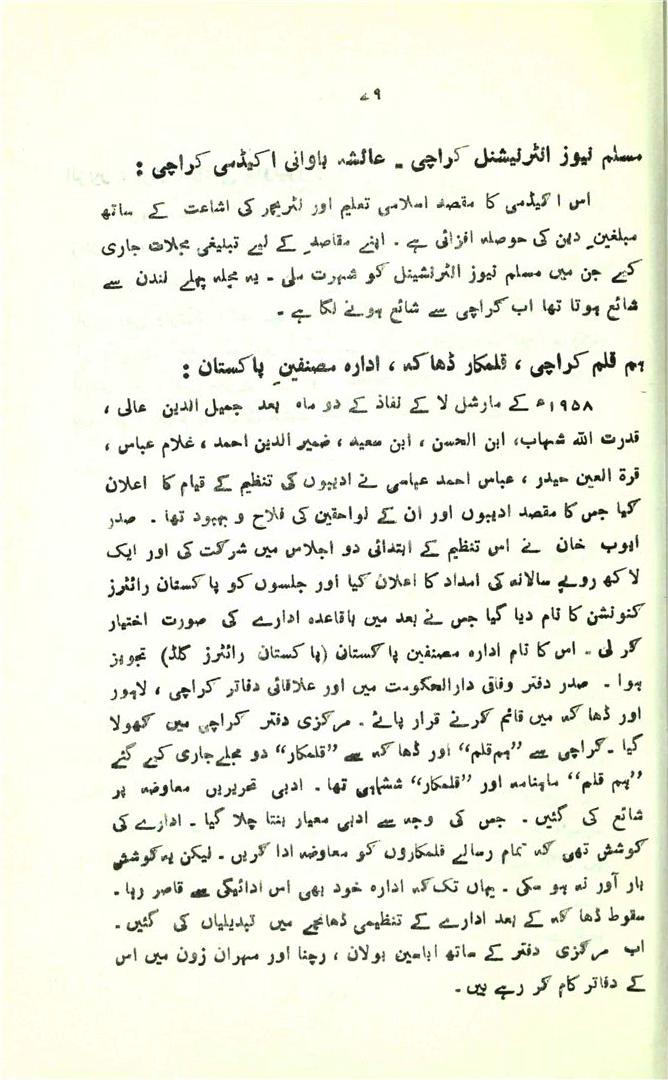 ۷۹
مسلم نیوز انٹرنیشنل کراچی ۔ عائشہ باوانی اکیڈمی کراچی :
اس اکیڈمی کا مقصد اسلامی تعلیم اور لٹریچر کی اشاعت کے ساتھ
مبلغینِ دین کی حوصلہ افزائی ہے ۔ اپنے مقاصد کے لیے تبلیغی مجلات جاری
کیے جن میں مسلم نیوز انٹرنیشنل کو شہرت ملی ۔ یہ مجلہ پہلے لندن سے
شائع ہوتا تھا اب کراچی سے شائع ہونے لگا ہے ۔
ہم قلم کراچی ، قلمکار ڈھاکہ ، ادارہ مصنفینِ پاکستان :
۱۹۵۸ء کے مارشل لا کے نفاذ کے دو ماہ بعد جمیل الدین عالی ،
قدرت اللہ شہاب، ابن الحسن ، ابن سعید ، ضمیر الدین احمد ، غلام عباس ،
قرۃ العین حیدر ، عباس احمد عباسی نے ادیبوں کی تنظیم کے قیام کا اعلان
کیا جس کا مقصد ادیبوں اور ان کے لواحقین کی فلاح و بہبود تھا ۔ صدر
ایوب خان نے اس تنظیم کے ابتدائی دو اجلاس میں شرکت کی اور ایک
لاکھ روپے سالانہ کی امداد کا اعلان کیا اور جلسوں کو پاکستان رائٹرز
کنونشن کا نام دیا گیا جس نے بعد میں باقاعدہ ادارے کی صورت اختیار
کر لی ۔ اس کا نام ادارہ مصنفین پاکستان (پاکستان رائٹرز گلڈ) تجویز
ہوا ۔ صدر دفتر وفاقی دارالحکومت میں اور علاقائی دفاتر کراچی ، لاہور
اور ڈھاکہ میں قائم کرنے قرار پائے ۔ مرکزی دفتر کراچی میں کھولا
گیا ۔ کراچی سے ”ہم قلم“ اور ڈھاکہ سے ”قلمکار“ دو مجلے جاری کیے گئے
”ہم قلم“ ماہنامہ اور ”قلمکار“ ششماہی تھا ۔ ادبی تحریریں معاوضہ پر
شائع کی گئیں ۔ جس کی وجہ سے ادبی معیار بنتا چلا گیا ۔ ادارے کی
کوشش تھی کہ تمام رسالے قلمکاروں کو معاوضہ ادا کریں ۔ لیکن یہ کوشش
بار آور نہ ہو سکی ۔ یہاں تک کہ ادارہ خود بھی اس ادائیگی سے قاصر رہا ۔
سقوط ڈھاکہ کے بعد ادارے کے تنظیمی ڈھانچے میں تبدیلیاں کی گئیں ۔
اب مرکزی دفتر کے ساتھ اباسین بولان ، رچنا اور مہران زون میں اس
کے دفاتر کام کر رہے ہیں ۔